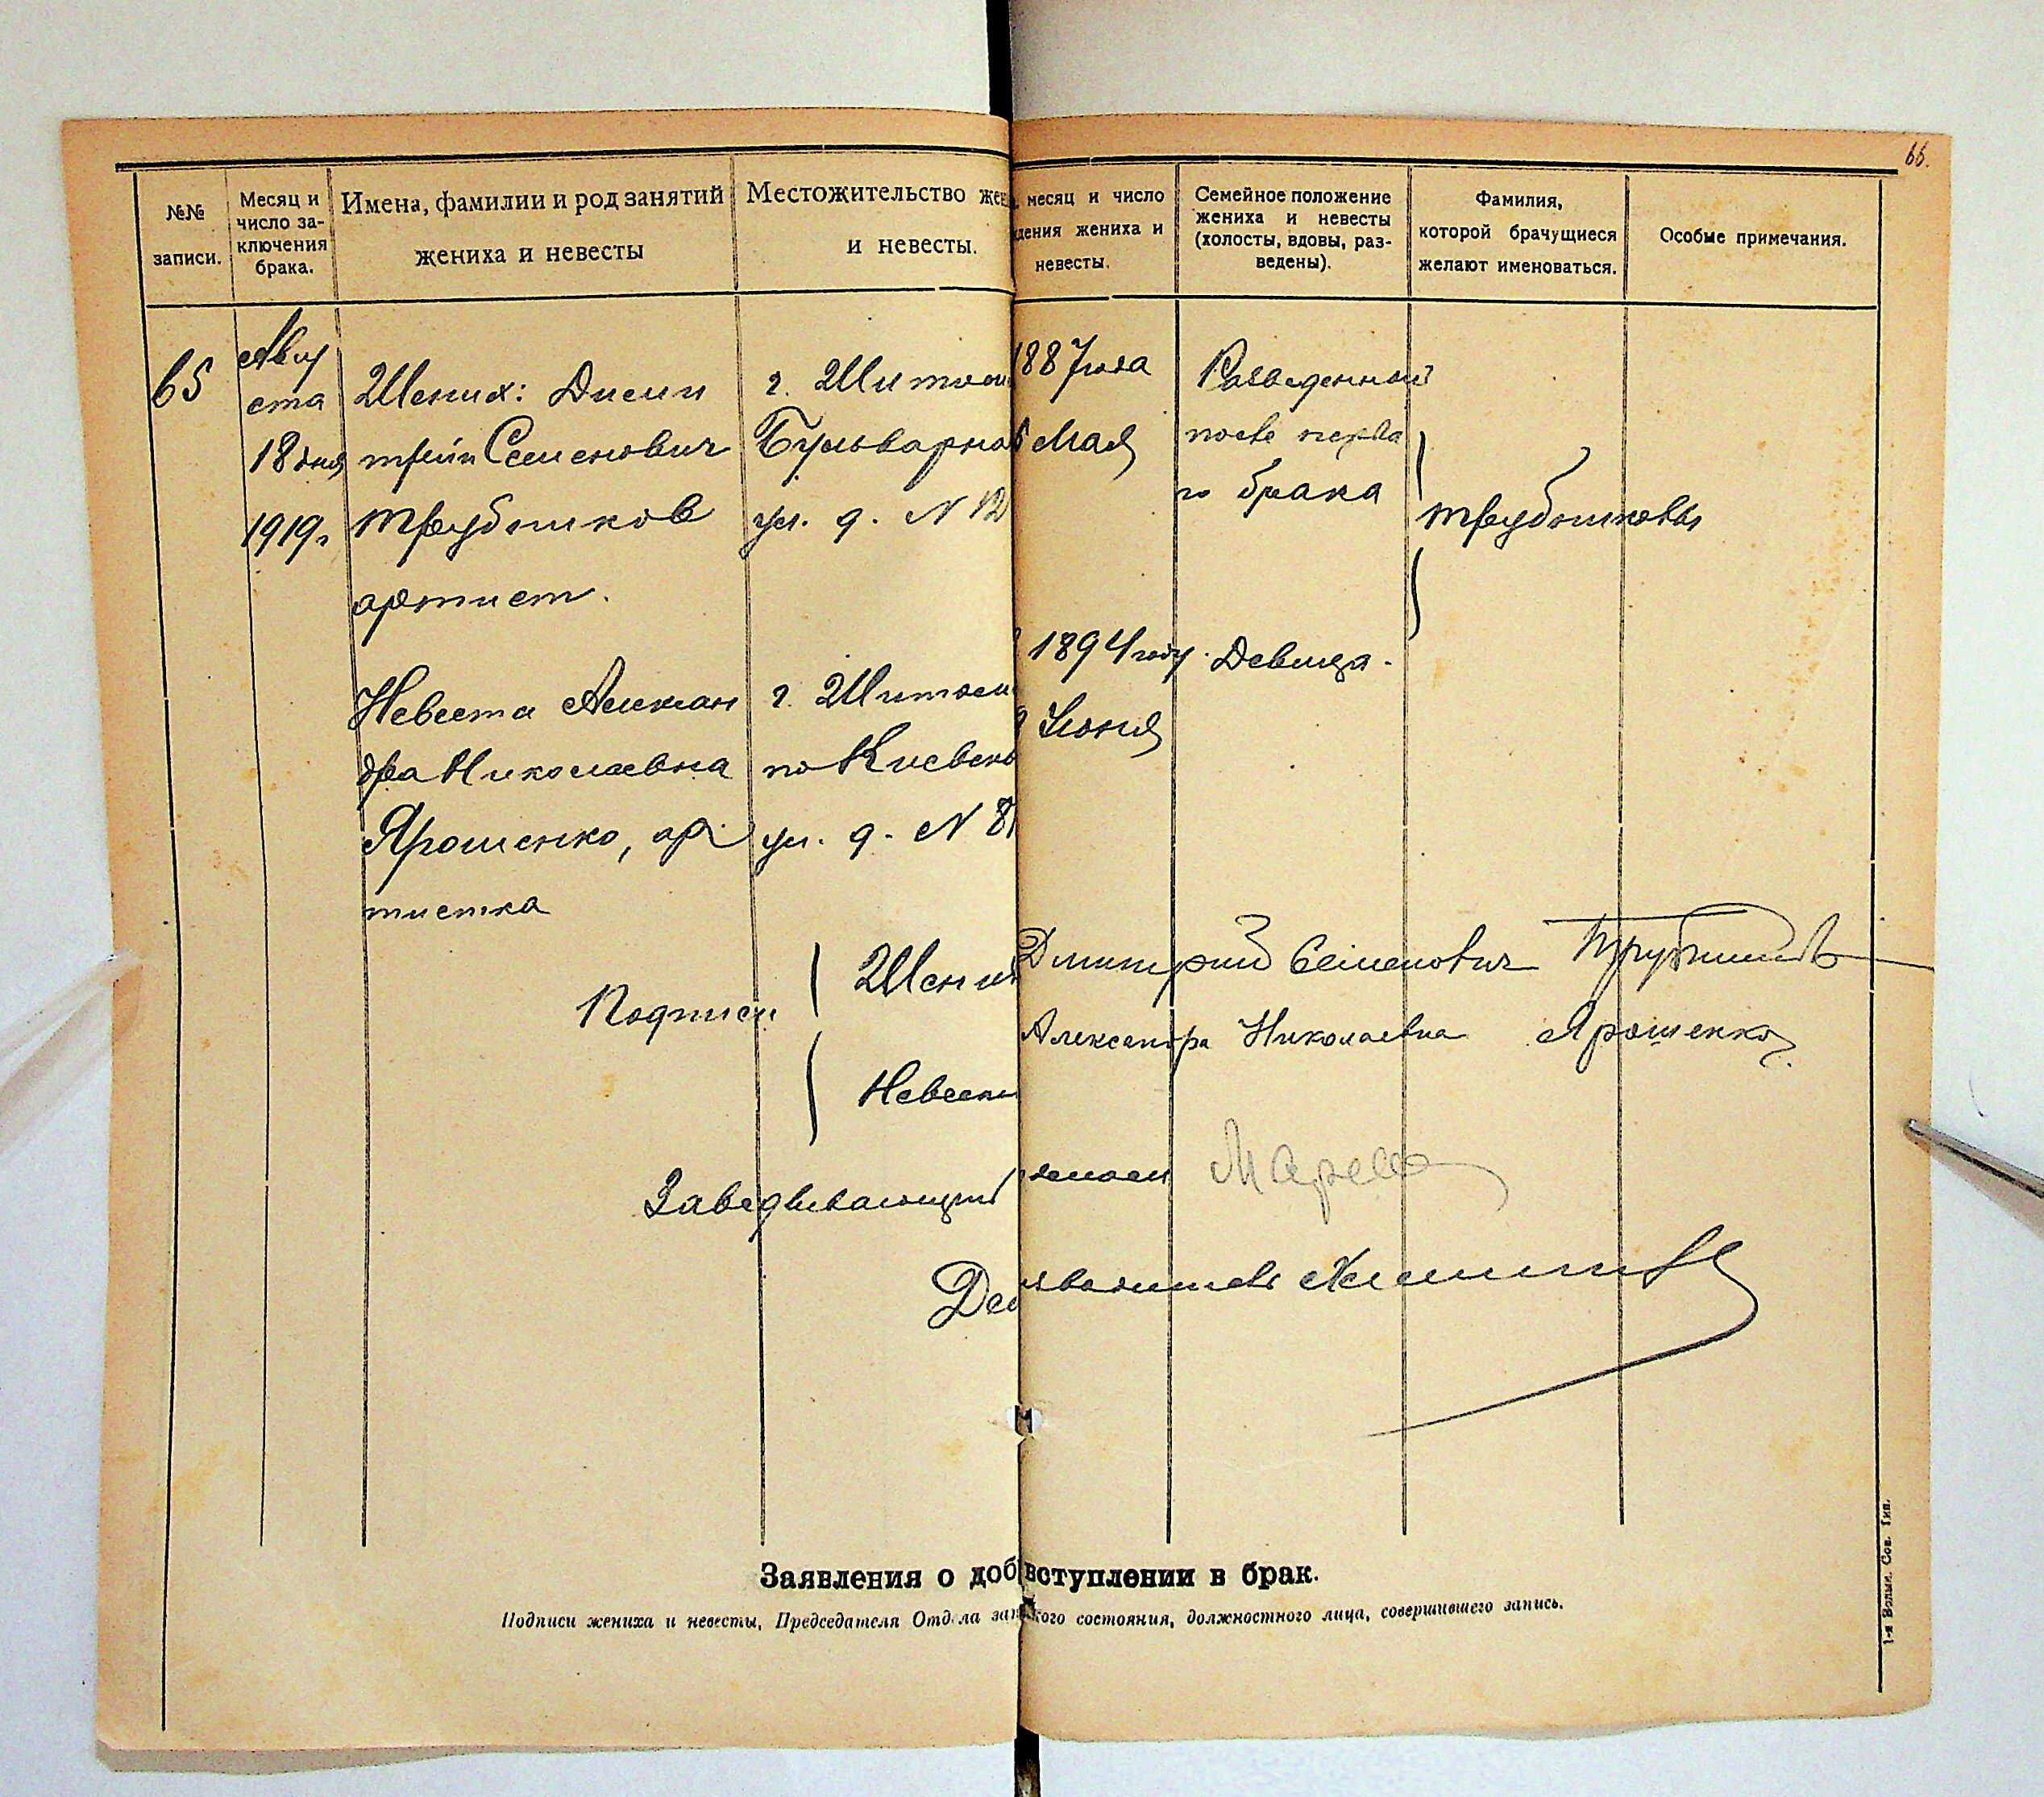 66.
№№
записи.
Месяц и
число за-
ключения
брака.
Имена, фамилии и род занятий
жениха и невесты
Местожительство жен
и невесты.
месяц и число
дения жениха и
невесты.
Семейное положение
жениха и невесты
(холосты, вдовы, раз-
ведены).
Фамилия,
которой брачущиеся
желают именоваться.
Особые примечания.
65
Авгу
ста
18 дня
1919 г
Жених: Дми
трий Семенович
Трубников
артист.
г. Житом
Бульварно
ул. д. N 12
1887 года
Мая
Разведенный
после перва
го брака
Трубниковы
Невеста Алексан
дра Николаевна
Ярошенко, ар
тистка
г. Житом
по Киевско
ул. д. N 8
1894 году
Июня
Девица.
Подписи
Жених
Дмитрий Семенович Трубников
Невеста
Александра Николаевна Ярошенко
Заведывающий
Дел
Заявления о доб вступлении в брак.
Подписи жениха и невесты, Председателя Отдела зап кого состояния, должностного лица, совершившего запись.
1-я Волын. Сов. Тип.